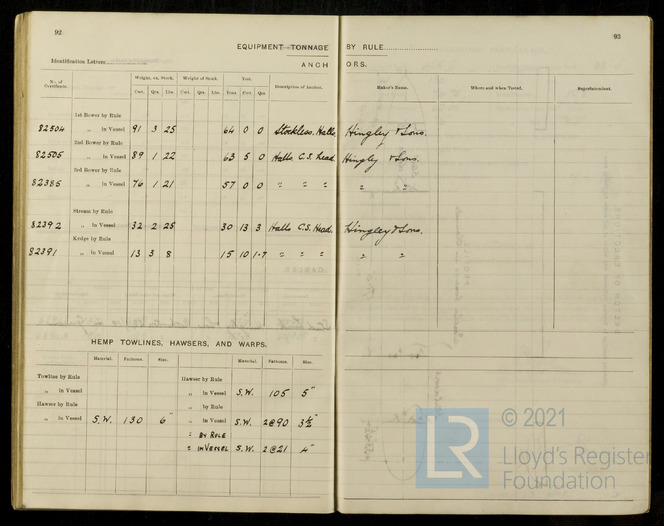 92
93
EQUIPMENT TONNAGE BY RULE
Identification Letters
ANCHORS.
No. of Certificate. Weight, ex. Stock. Weight of Stock. Test. Description of Anchor. Maker's Name. Where and when Tested. Superintendent.
Cwt. Qrs. Lbs. Cwt. Qrs. Lbs. Tons. Cwt. Qrs.
1st Bower by Rule
82504 „ in Vessel 91 3 25 64 0 0 Stockless. Halls Hingley & Sons.
2nd Bower by Rule
82505 „ in Vessel 89 1 22 63 5 0 Halls C.S. head Hingley & Sons.
3rd Bower by Rule
82385 „ in Vessel 76 1 21 57 0 0 " " " " "
Stream by Rule
82392 „ in Vessel 32 2 25 30 13 3 Halls C.S. Head. Hingley & Sons.
Kedge by Rule
82391 „ in Vessel 13 3 8 15 10 1·7 " " " " "
HEMP TOWLINES, HAWSERS, AND WARPS.
Material. Fathoms. Size. Material. Fathoms. Size.
Towline by Rule Hawser by Rule
„ in Vessel „ in Vessel S.W. 105 5"
Hawser by Rule „ by Rule
„ in Vessel S.W. 130 6" „ in Vessel S.W. 2@90 3½"
" BY RULE
" IN VESSEL S.W. 2@21 4"
LR
© 2021
Lloyd's Register
Foundation